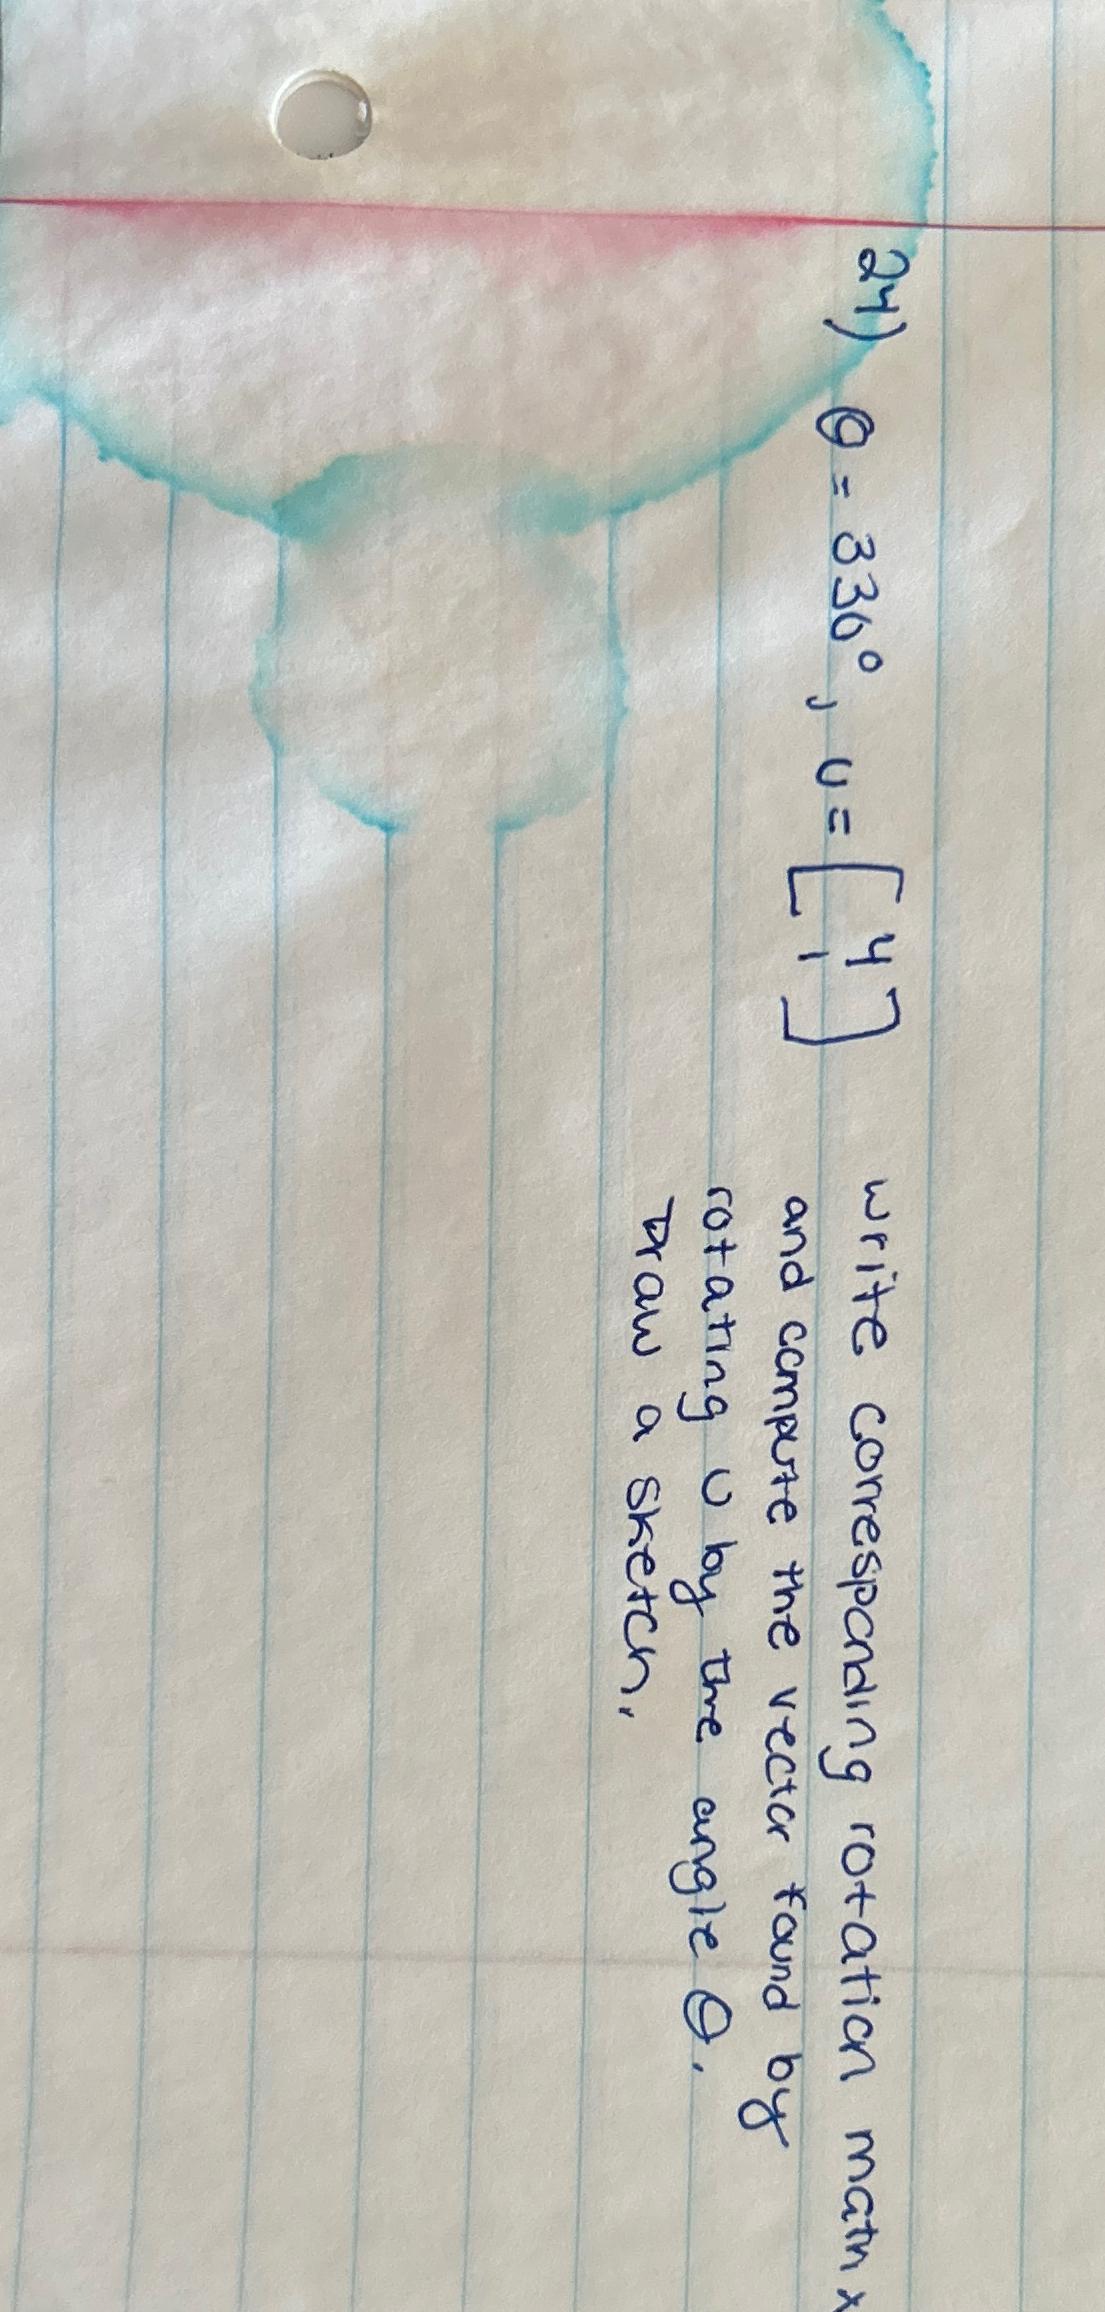 24) θ = 330°, u = [4 1] write corresponding rotation matrix
and compute the vector found by
rotating u by the angle θ.
Draw a sketch.